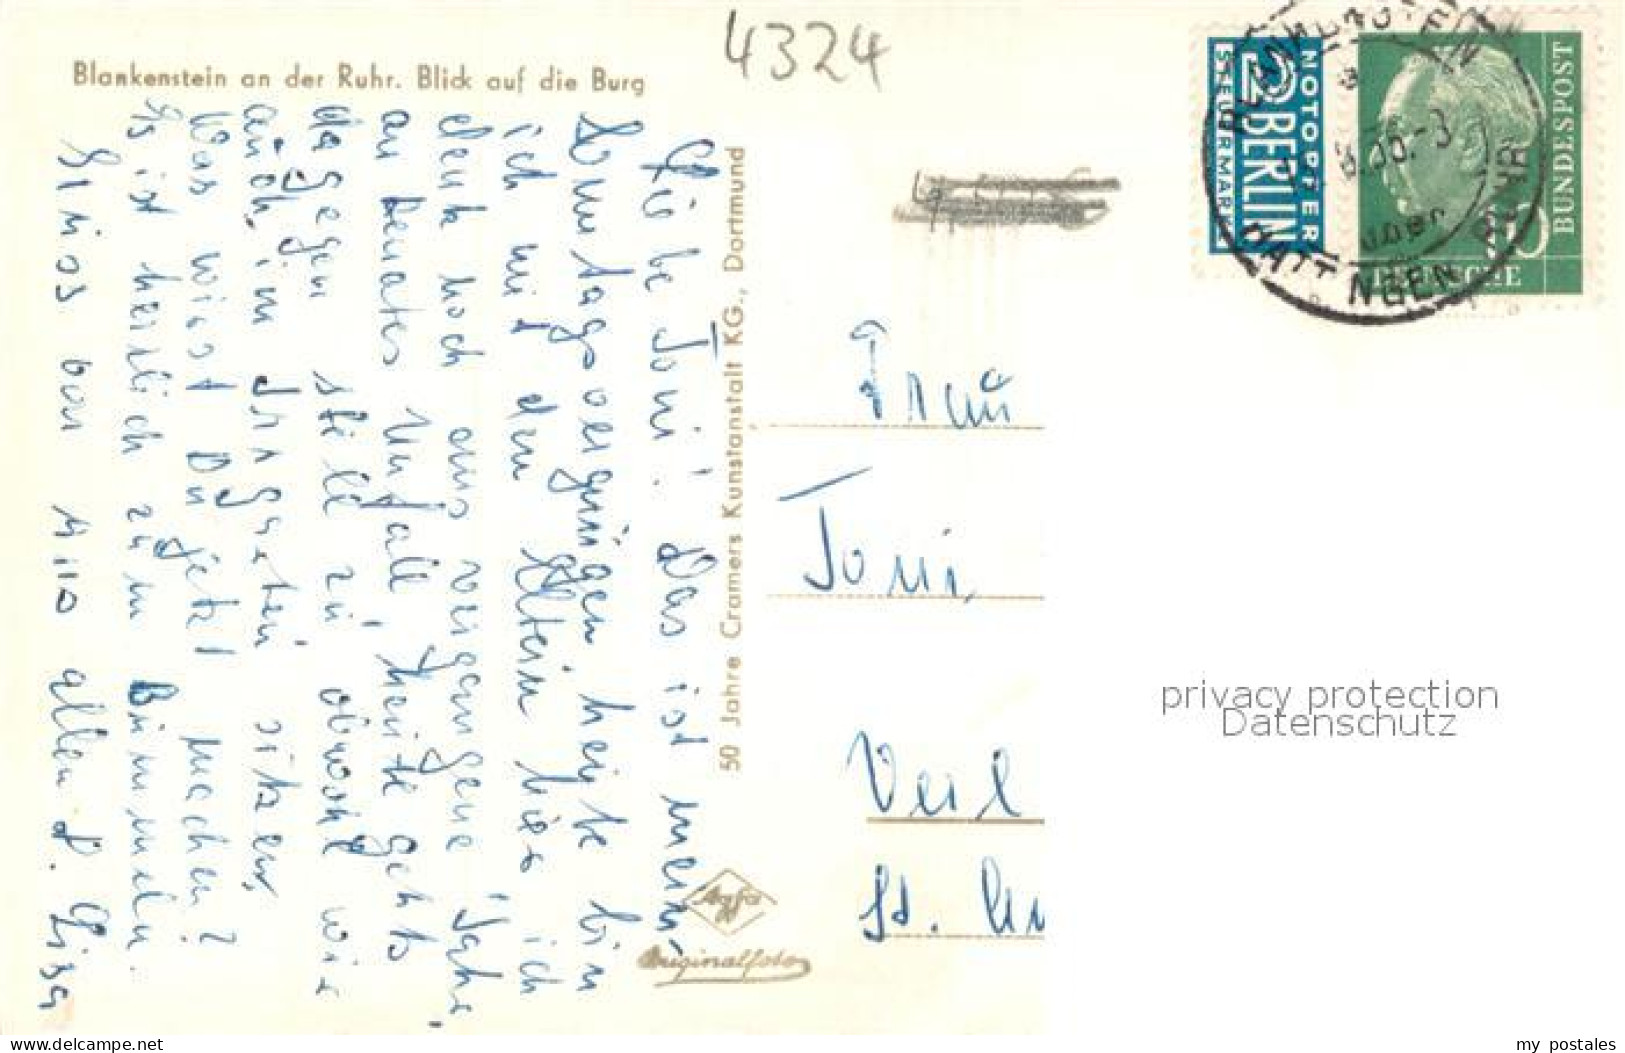 Blankenstein an der Ruhr. Blick auf die Burg
4324
Liebe Toni! Das ist mein
Sonntagsvergnügen heute bin
ich mit den Eltern hier ich
denk noch ans vergangene Jahr
an Renates Unfall, heute gehts
dagegen still zu obwohl wir
auch im Irrgarten sitzen,
Was wirst Du jetzt machen?
Es ist herrlich zum Bummeln.
Gruss von uns allen d. Lisa
50 Jahre Cramers Kunstanstalt KG., Dortmund
Agfa
Originalfoto
NOTOPFER
2 BERLIN
STEUERMARKE
BUNDESPOST
DEUTSCHE
10
BLANKENSTEIN
HATTINGEN RUHR
Frau
Toni
privacy protection
Datenschutz
Veil
St. An
www.delcampe.net
my_postales